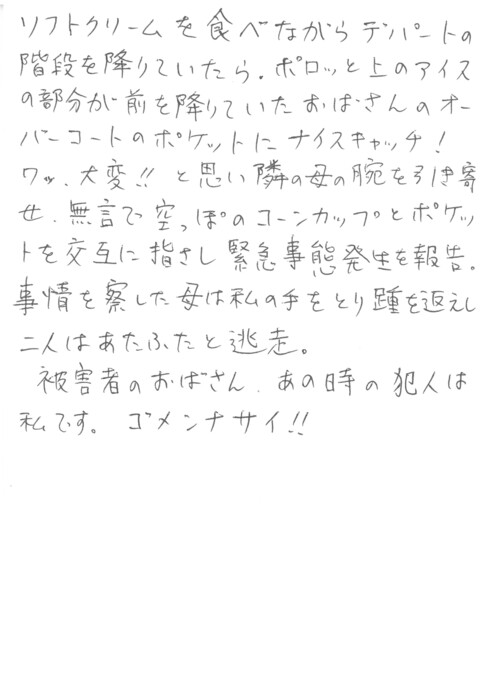 ソフトクリームを食べながらデパートの
階段を降りていたら、ポロッと上のアイス
の部分が前を降りていたおばさんのオー
バーコートのポケットにナイスキャッチ!
ワッ、大変!!と思い隣の母の腕を引き寄
せ、無言で空っぽのコーンカップとポケッ
トを交互に指さし緊急事態発生を報告。
事情を察した母は私の手をとり踵を返えし
二人はあたふたと逃走。
被害者のおばさん、あの時の犯人は
私です。ゴメンナサイ!!